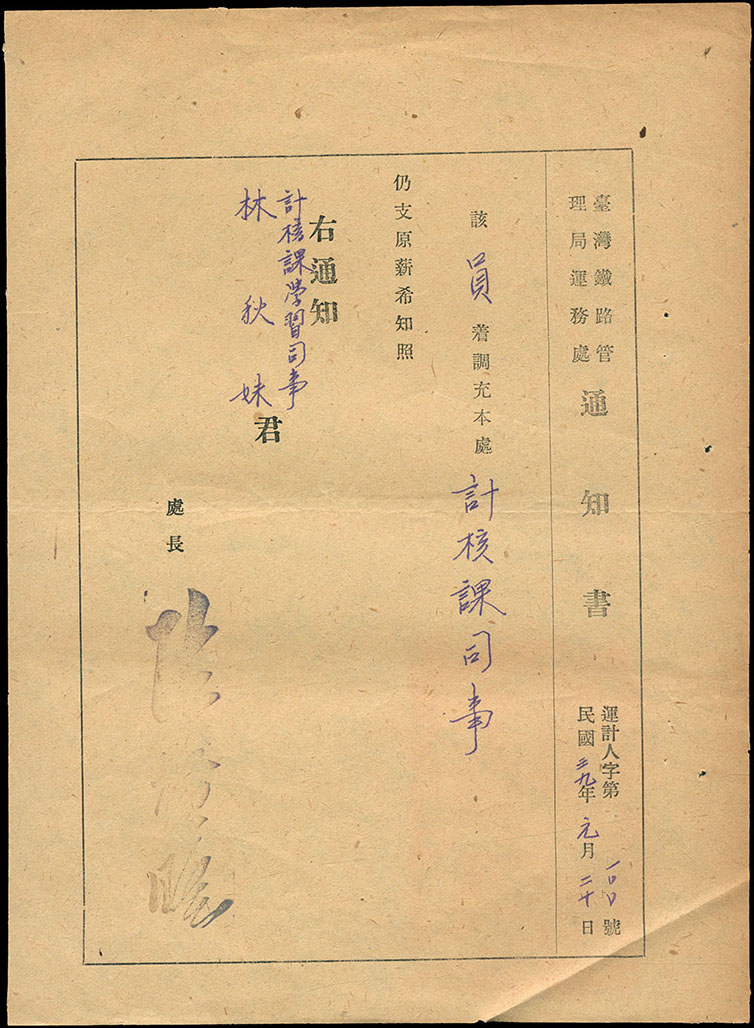 臺灣鐵路管
理局運務處
通知書
運計人字第一〇〇號
民國三九年元月二十日
該員着調充本處計核課司事
仍支原薪希知照
右通知
計核課学習司事
林秋妹君
處長